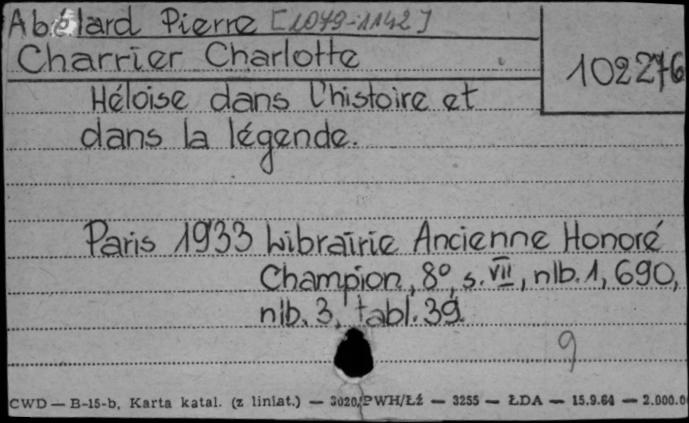 Abélard Pierre [1079-1142]
Charrier Charlotte
102276
Héloise dans l'histoire et
dans la légende.
Paris 1933 Librairie Ancienne Honoré
Champion, 8°, s. VII, nlb. 1, 690,
nlb. 3, tabl. 39.
9
CWD — B-15-b, Karta katal. (z liniat.) — 3020/PWH/Łź — 3255 — ŁDA — 15.9.64 — 2.000.0